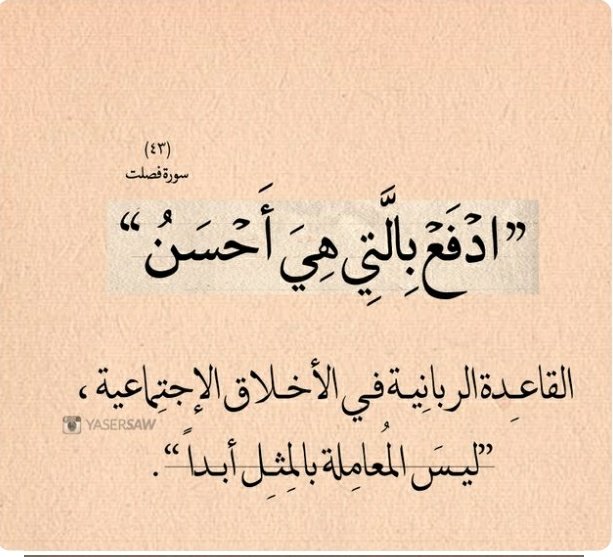 (٤٣)
سورة فصلت
”ادْفَعْ بِالَّتِي هِيَ أَحْسَنُ“
القاعِدة الربانِية في الأخلاق الإجتِماعية ،
YASERSAW
”ليسَ المُعامِلة بالمِثِلِ أبداً“.